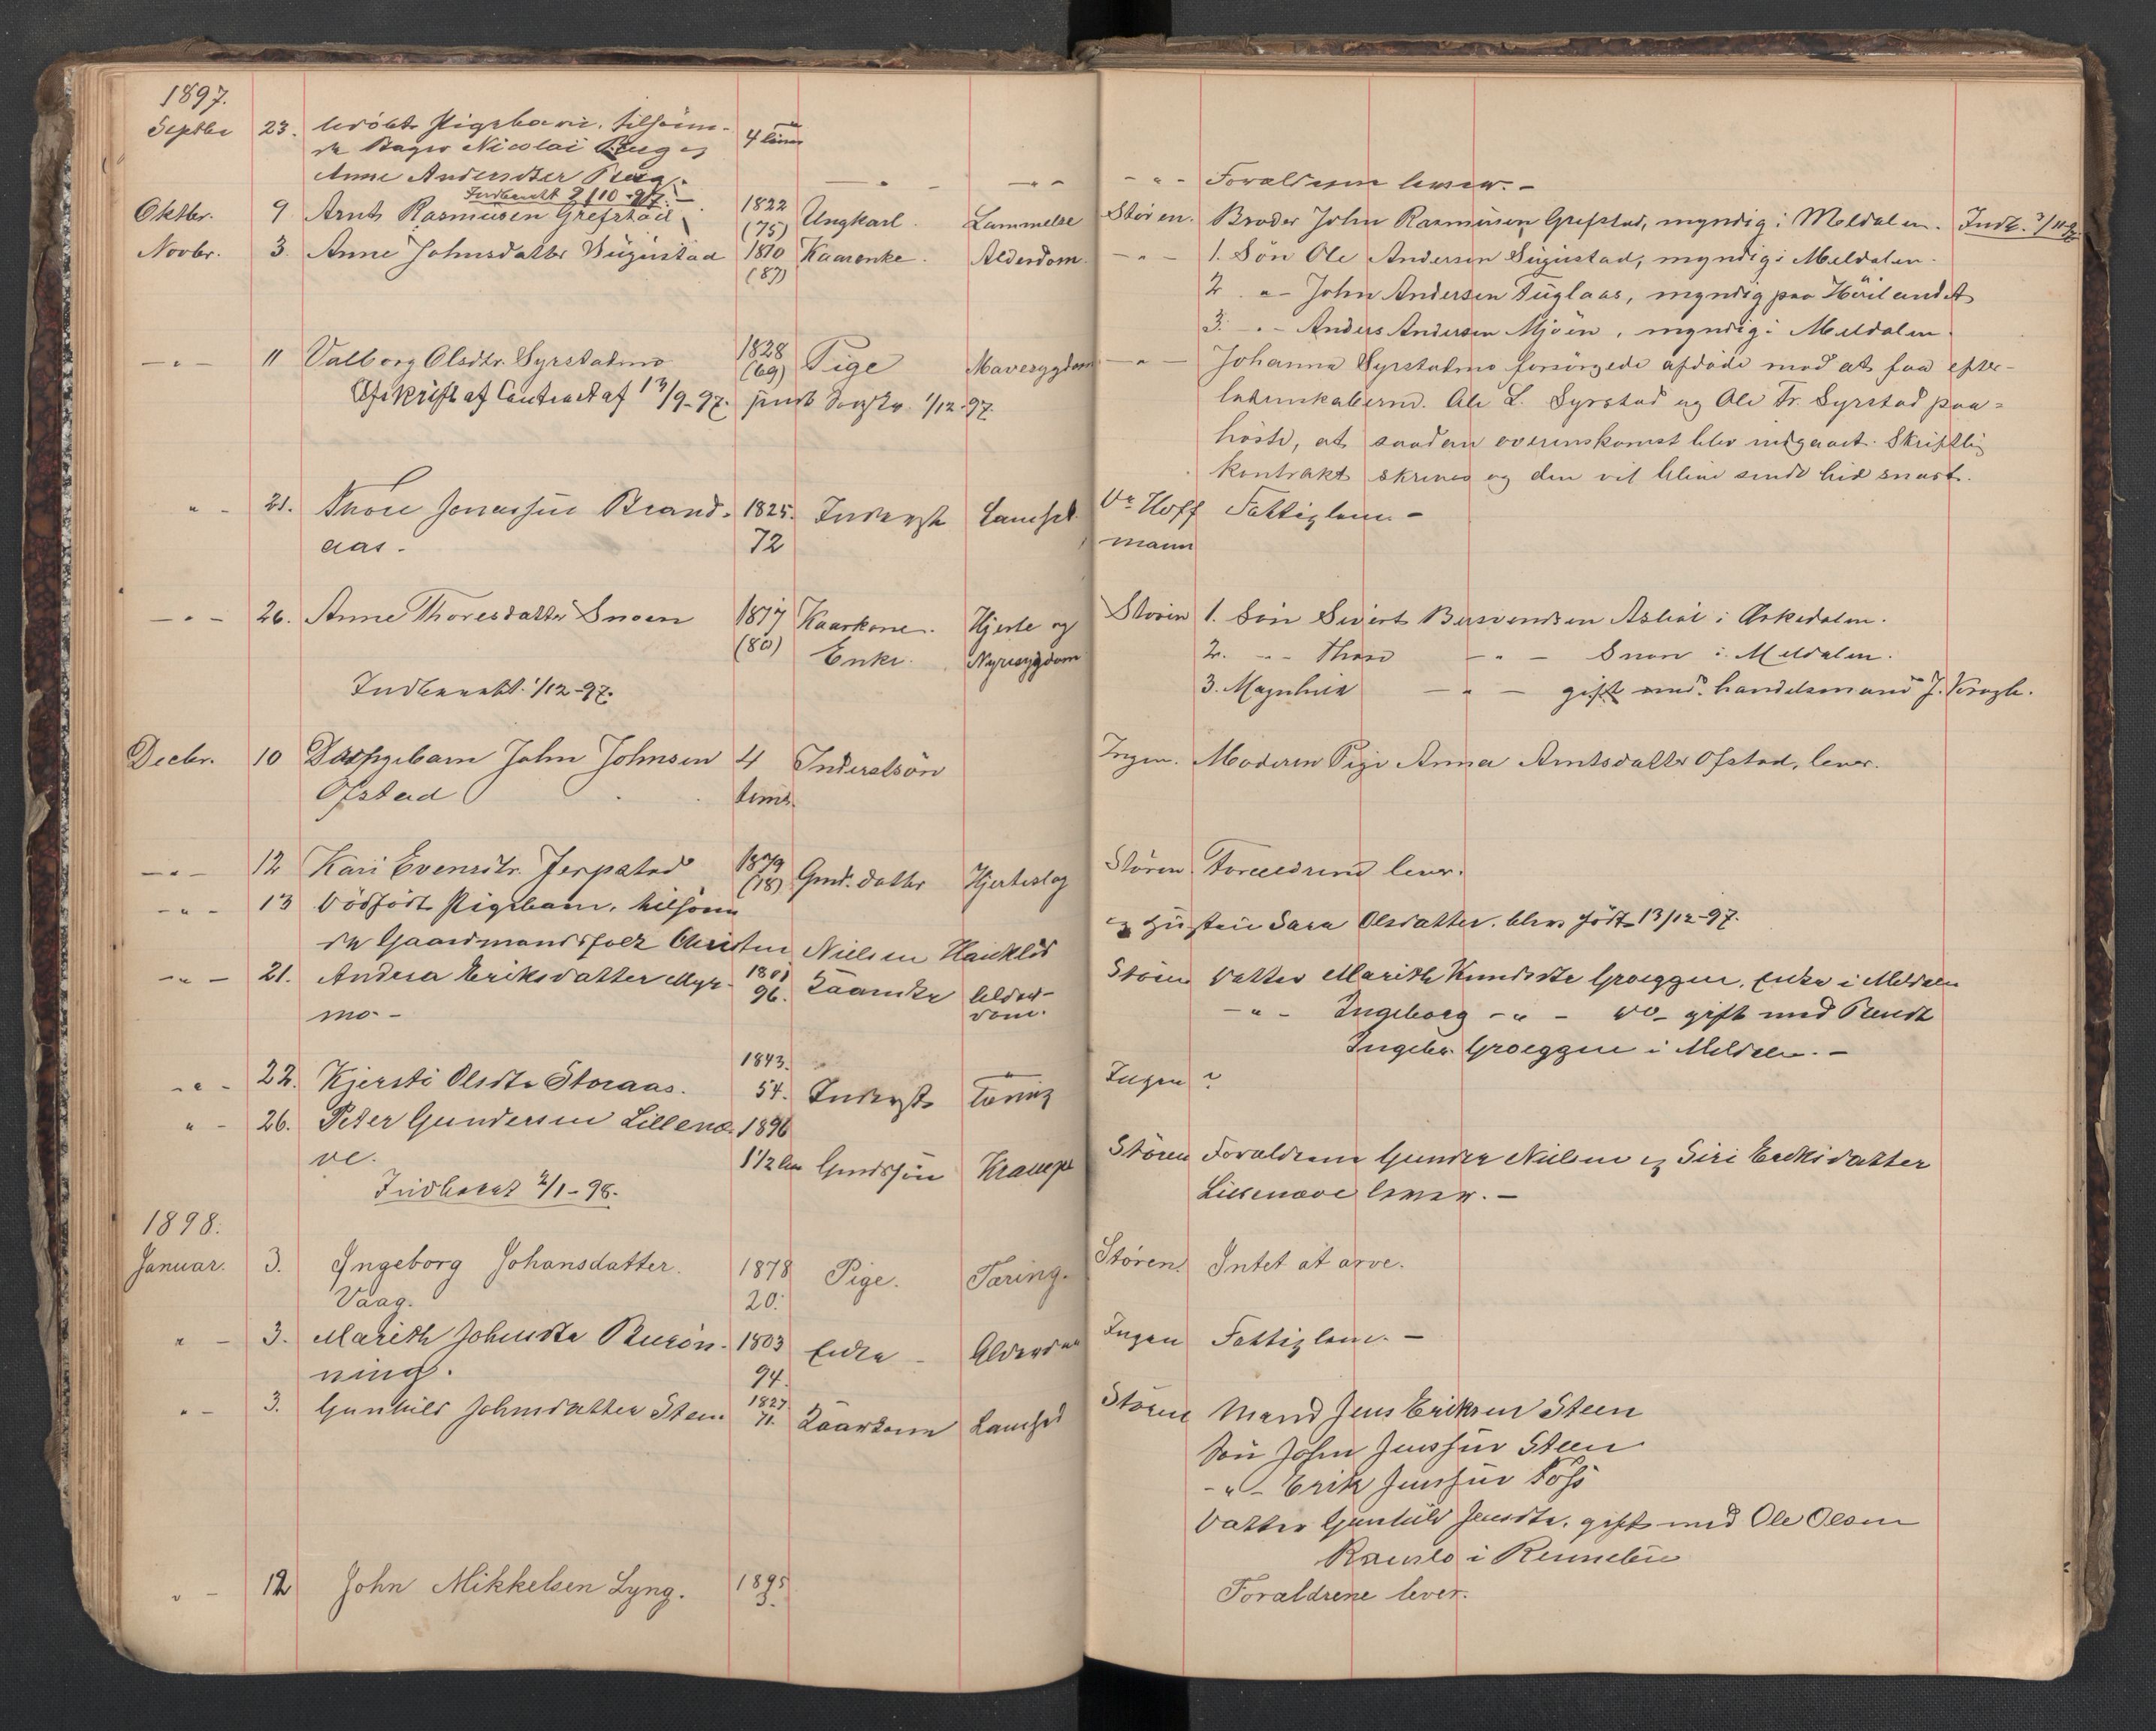 1897.
Septbr 23. udöbt Pigebarn, tilhörende Bager Nicolai Bug og Anne Andersdtter Bug. 4 timer — Forældrene lever. —
Indberett 2/10-97. —
Oktbr. 9 Arnt Rasmusen Grefstad 1822 (75) Ungkarl. Lammelse Støren. Broder John Rasmusen Grefstad, myndig i Meldalen. Indb.
Novbr. 3. Anne Johnsdatter 1810 (87) Kaarenke. Alderdom. — " — 1. Sön Ole Andersen, myndig i Meldalen.
2 " — John Andersen Fuglaas, myndig paa Höilandet
3. " — Anders Andersen Mjöen, myndig i Meldalen.
— " — 11 Valborg Olsdtr. Syrstadmo 1828 (69) Pige Mavesygdom — " — Johanna Syrstadmo forsörgede afdöde mod at faa efter-
Afskrift af Contract af 13/9-97. sendt 1/12-97.
ladenskaberne. Ole L. Syrstad og Ole Tr. Syrstad paa-
hörte, at saadan overenskomst blev indgaaet. Skriftlig
kontrakt skreves og den vil blive sendt hid snart.
" — 21. Thore Brandaas. 1825. 72 Inderst Hoffmann Fattiglem. —
— " — 26. Anne Thoresdatter Snoen 1817 (80) Kaarkone. Enke. Hjerte og Nyresygdom Støren 1. Sön Sivert i Orkedalen.
2. — " — Thore — " — Snoen i Meldalen.
Indberettet 1/12-97.
3. Magnhild — " — gift med handelsmand J. Krogh.
Decbr. 10 Drengebarn John Johnsen Ofstad 4 timer Inderstsön Ingen. Moderen Pige Anna Arntsdatter Ofstad, lever.
— " — 12 Kari Evensdtr. Jerpstad 1879 (18) Gmd. datter Hjerteslag Støren Forældrene lever.
— " — 13 Dödfödt Pigebarn, tilhören
de Gaardmandsfolk Christen Nielsen og Hustru Sara Olsdatter. blev födt 13/12-97.
— " — 21. Andrea Eriksdatter Myrmo — 1801 96. Alderdom. Støren Datter Marith Knudsdtr Groeggen, Enke i Meldalen
— " — Ingeborg — " — do — gift med
Ingebr. Groeggen i Meldalen. —
— " — 22. Kjersti Olsdtr Storaas. 1843. 54. Inderst Tæring Ingen ?
" — 26. Peter Gundersen Lillenæve. 1896 1 1/2 Gmdssön Krampe Støren Forældrene Gunder Nielsen og Siri Eriksdatter
Lillenæve lever. —
Indberet 2/1-98.
1898.
Januar. 3. Ingeborg Johansdatter. Vaag. 1878 20. Pige. Tæring. Støren. Intet at arve.
" — 3. Marith Johnsdtr 1803 94. Enke — Alderdom Ingen Fattiglem. —
" — 3. Gunhild Johnsdatter Steen 1827 71. Kaarkone Støren Mand Jens Eriksen Steen
Sön John Jenssen Steen
— " — Erik Jenssen Foss
Datter Gunhild Jensdtr. gift med Ole Olsen
i Rennebu
" — 12 John Mikkelsen Lyng. 1895 3. Forældrene lever.